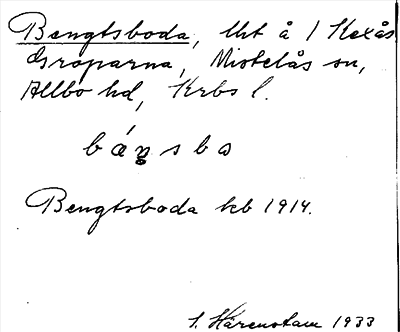 Bengtsboda, lht å / Kexås
Groparna, Mistelås sn,
Allbo hd, Krbs l.
bánsba
Bengtsboda kb 1914.
S. Härenstam 1933